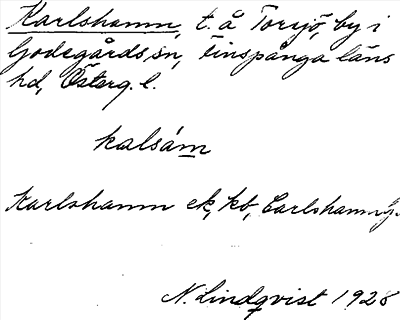 Karlshamn, t. å Torsjö, by i
Godegårds sn, Finspånga läns
hd, Österg. l.
kalsám
Karlshamn ek, kb, Carlshamn
N. Lindqvist 1928